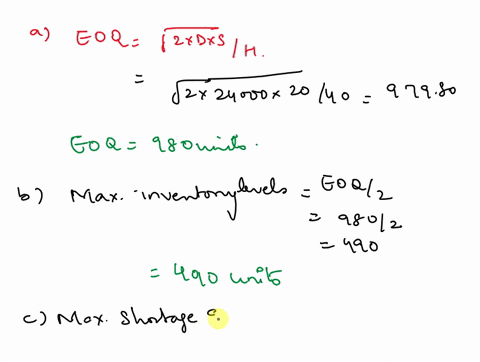 a) EOQ = √2×D×S /H.
= √2×24000×20 /40 = 979.80
EOQ = 980 units.
b) Max. inventory levels = EOQ/2
= 980/2
= 490
= 490 units
c) Max. Shortage